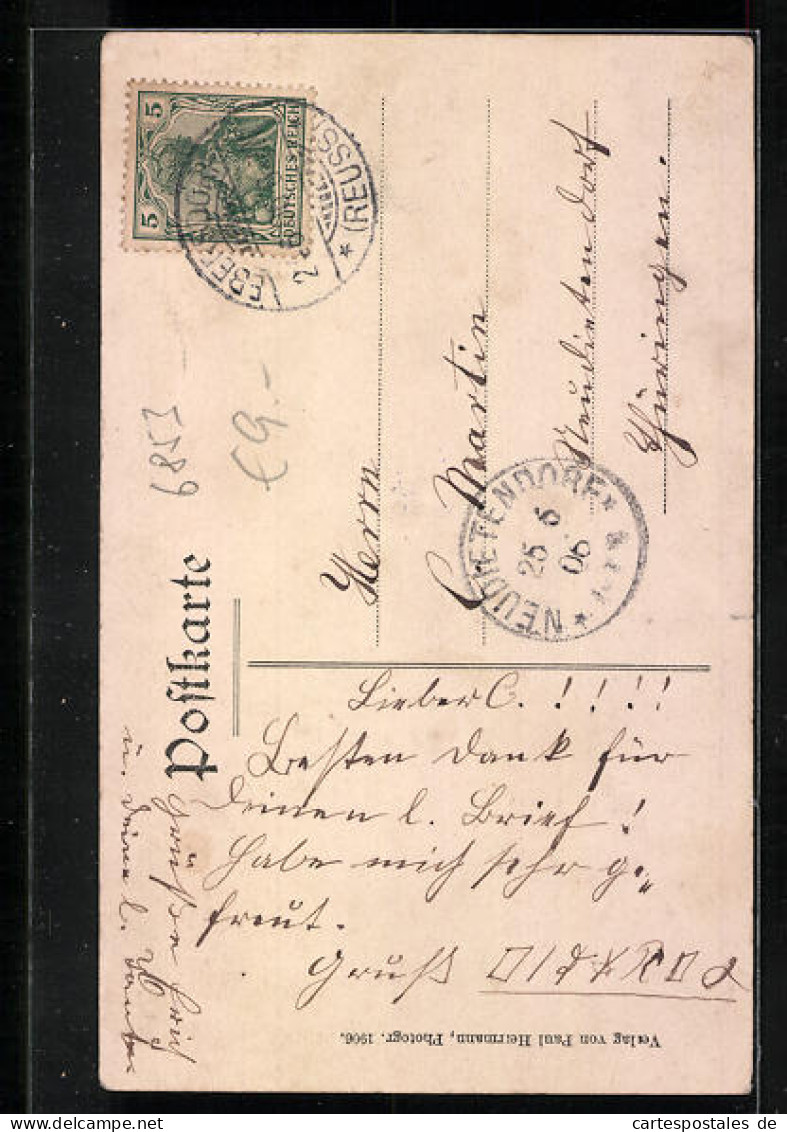 Postkarte
5 5
DEUTSCHES REICH
(REUSS)
6853
€ 9.-
Herrn
C. Martin
Neudietendorf
Thüringen.
NEUDIETENDORF
25 6
06
Lieber C.!!!!
Besten Dank für
Deinen l. Brief!
Habe mich sehr ge„
freut.
Gruß
Grüße
u. Deine l.
Verlag von Paul Herrmann, Photogr. 1906.
cartespostales de